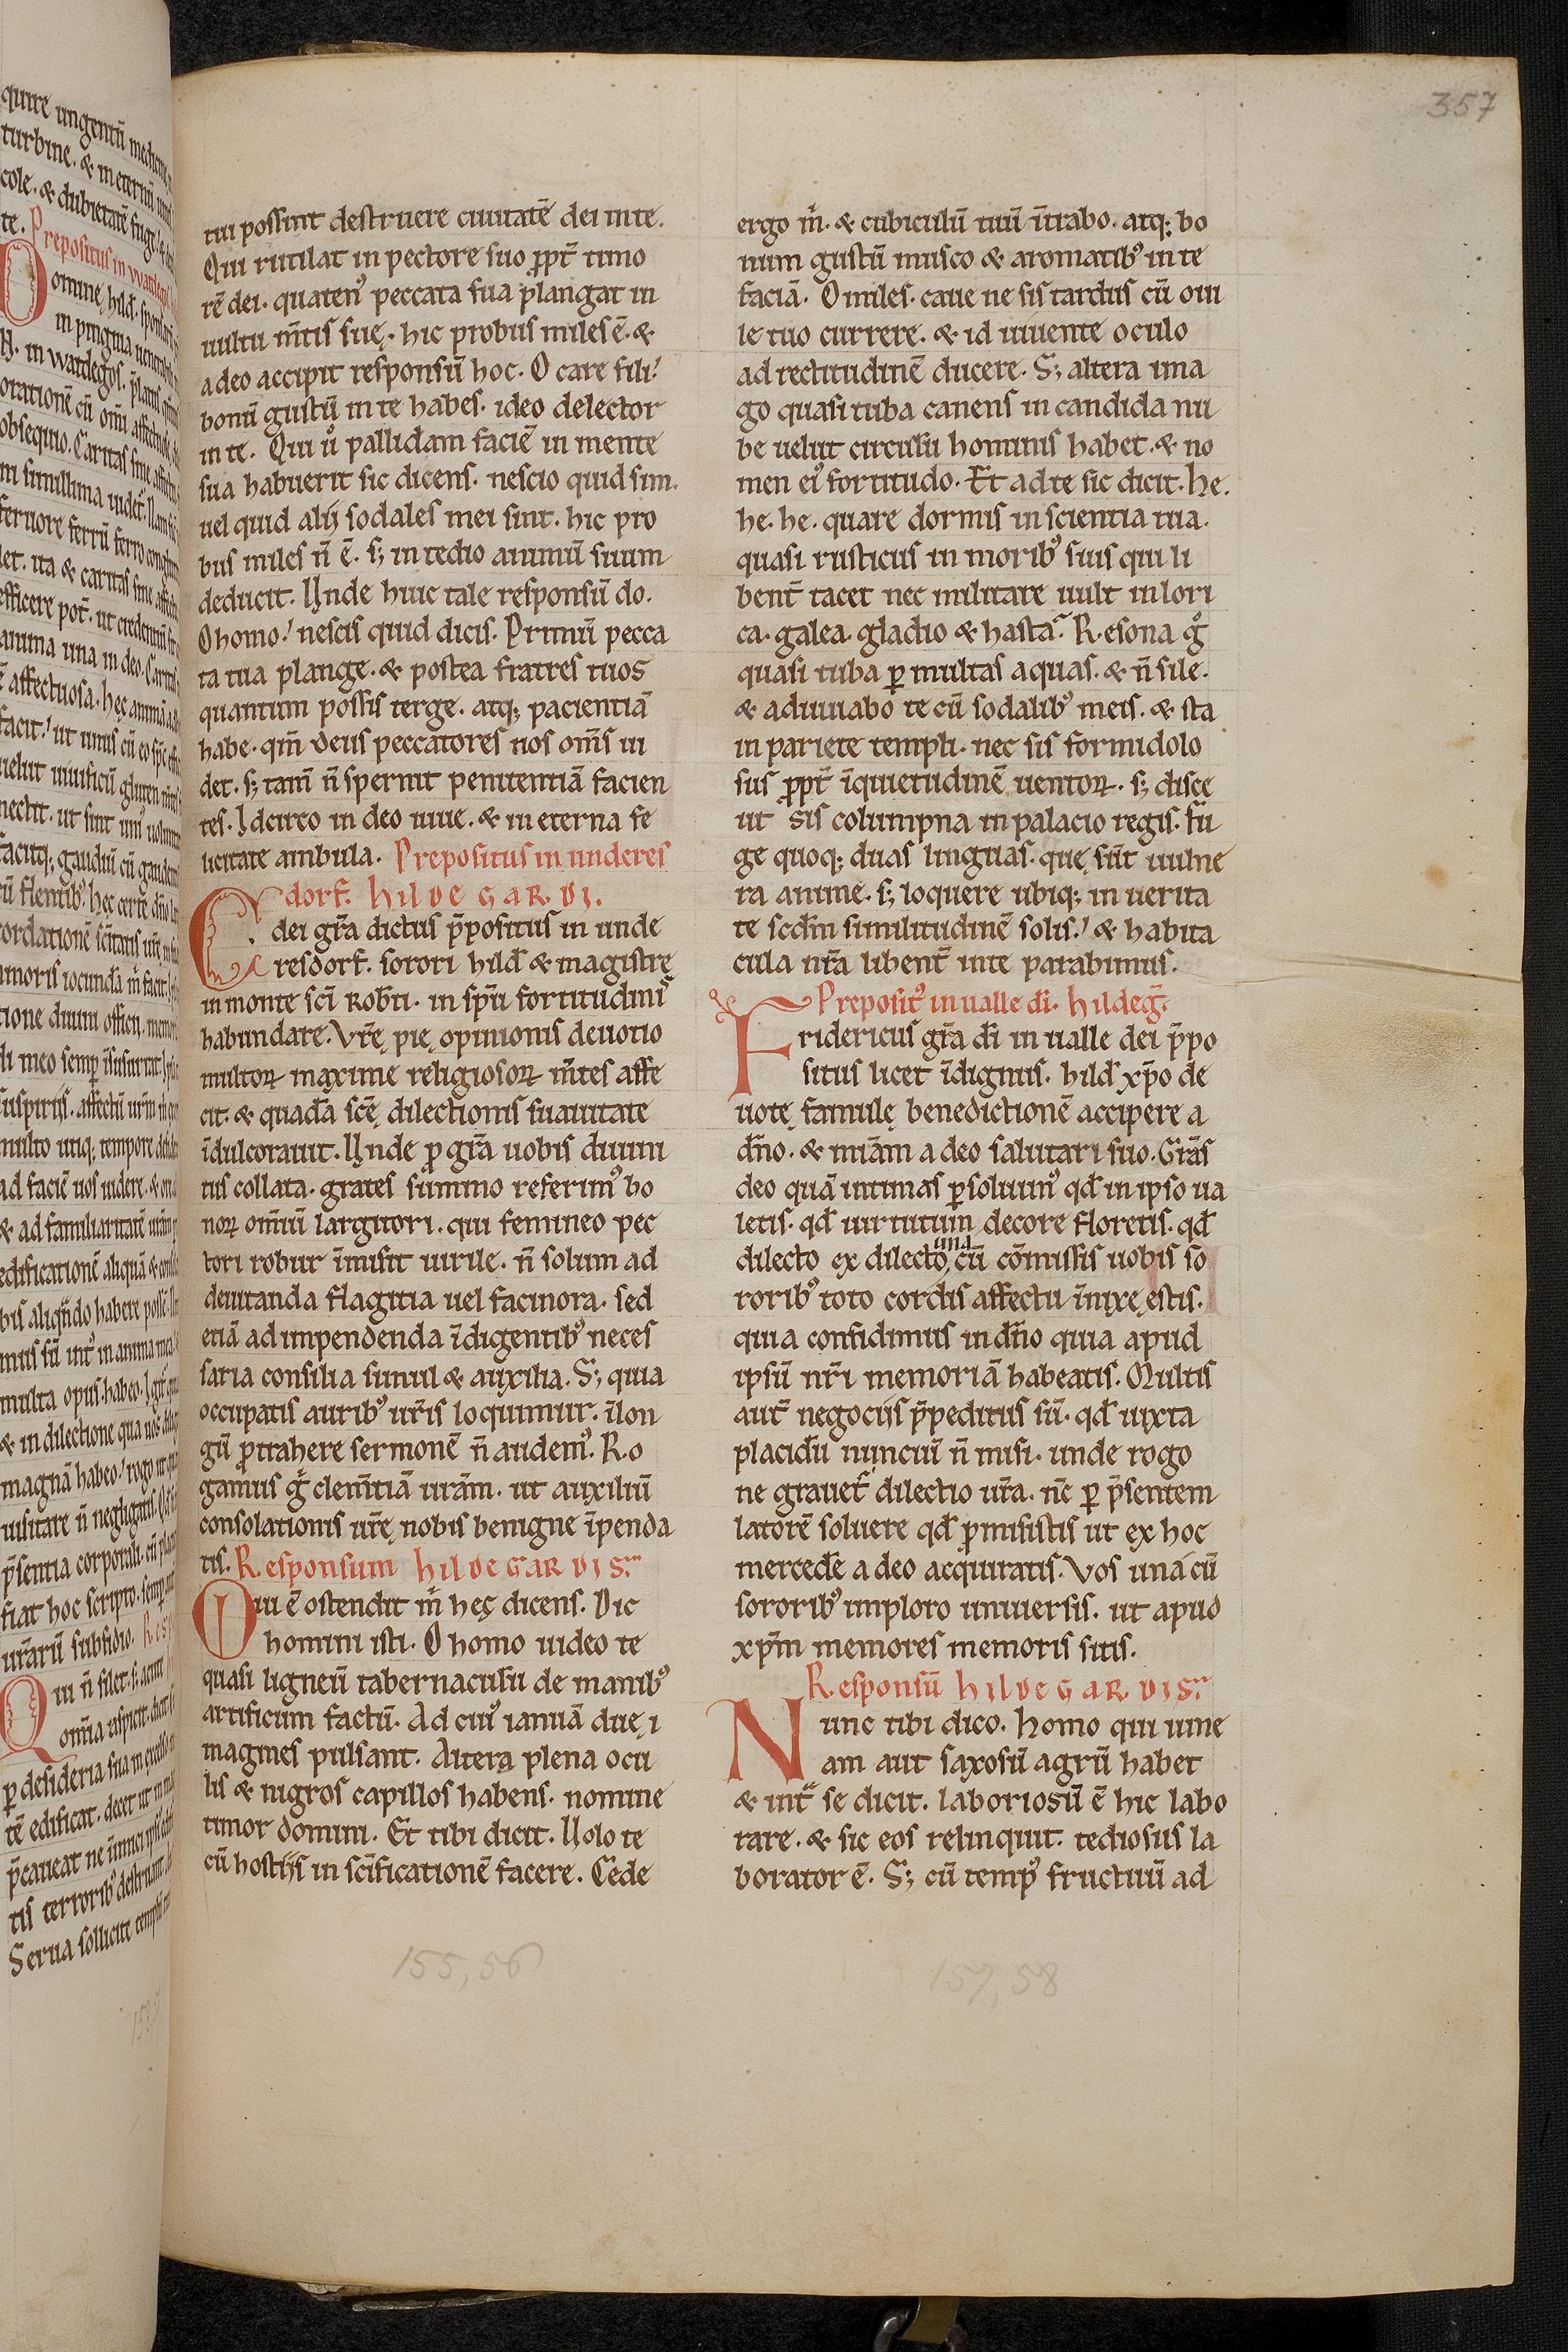 357
tui possint destruere ciuitatē dei in te.
Qui rutilat in pectore suo ꝓpt̄ timo
rē dei. quatenꝰ peccata sua plangat in
uultu m̄tis suę. hic probus miles ē. &
a deo accipit responsū hoc. O care fili!
bonū gustū in te habes. ideo delector
in te. Qui ů pallidam faciē in mente
sua habuerit sic dicens. nescio quid sim.
uel quid alij sodales mei sint. hic pro
bus miles n̄ ē. s; in tedio animū suum
deducit. Unde huic tale responsū do.
O homo! nescis quid dicis. Primū pecca
ta tua plange. & postea fratres tuos
quantum possis terge. atq; pacientiā
habe. qm̄ deus peccatores nos om̄s ui
det. s; tam̄ n̄ spernit penitentiā facien
tes. Idcirco in deo uiue. & in eterna fe
licitate ambula. Prepositus in underes
dorf. hILDEGARDI.
C. dei gr̄a dictus p̄positus in unde
resdorf. sorori hild̄ & magistrę
in monte sc̄i Rob̄ti. in sp̄u fortitudinis
habundare. Vr̄ę pię opinionis deuotio
multoꝝ maxime religiosoꝝ m̄tes affe
cit. & quadā sc̄ę dilectionis suauitate
īdulcorauit. Unde ꝓ gr̄a uobis diuini
tus collata. grates summo referimꝰ bo
noꝝ omniū largitori. qui femineo pec
tori robur īmisit uirile. n̄ solum ad
deuitanda flagitia uel facinora. sed
etiā ad impendenda īdigentibꝰ neces
saria consilia simul & auxilia. S; quia
occupatis auribꝰ ur̄is loquimur. ī lon
gū ꝓtrahere sermonē n̄ audemꝰ. Ro
gamus g̊ clem̄tiā urām. ut auxiliū
consolationis ur̄ę nobis benigne īpenda
tis. Responsum hILDEGARDIS.
Qui ē ostendit m̊ hęc dicens. Dic
homini isti. O homo uideo te
quasi ligneū tabernaculū de manibꝰ
artificum factū. Ad cuiꝰ ianuā duę i
magines pulsant. Altera plena ocu
lis & nigros capillos habens. nomine
timor domini. Et tibi dicit. Uolo te
cū hostijs in sc̄ificationē facere. Cede
155, 56
ergo m̊. & cubiculū tuū ītrabo. atq; bo
num gustū musco & aromatibꝰ in te
faciā. O miles. caue ne sis tardus cū oui
le tuo currere. & id uiuente oculo
ad rectitudinē ducere. S; altera ima
go quasi tuba canens in candida nu
be uelut circulū hominis habet. & no
men eiꝰ fortitudo. Et ad te sic dicit. he.
he. he. quare dormis in scientia tua.
quasi rusticus in moribꝰ suis qui li
bent̄ tacet nec militare uult in lori
ca. galea. gladio & hasta. Resona g̊
quasi tuba ꝑ multas aquas. & n̄ sile.
& adiuuabo te cū sodalibꝰ meis. & sta
in pariete templi. nec sis formidolo
sus ꝓpt̄ īquietudinē uentoꝝ. s; disce
ut sis columpna in palacio regis. fu
ge quoq; duas linguas. quę sūt uulne
ra anime. s; loquere ubiq; in uerita
te scd̄m similitudinē solis! & habita
cula nr̄a libent̄ in te parabimus.
Prepositꝰ in ualle dī. hildeḡ.
Fridericus gr̄a dī in ualle dei p̄po
situs licet īdignus. hild̄ xp̄o de
uotę famulę benedictionē accipere a
dn̄o. & miām a deo salutari suo. Grās
deo quā intimas ꝑsoluimꝰ qd̄ in ipso ua
letis. qd̄ uirtutum decore floretis. qd̄
dilecto ex dilecto una cū cōmissis uobis so
roribꝰ toto cordis affectu īnixę estis.
quia confidimus in dn̄o quia apud
ipsū nr̄i memoriā habeatis. Multis
aut̄ negociis p̄peditus sū. qd̄ iuxta
placidū nunciū n̄ misi. unde rogo
ne grauet̄ dilectio ur̄a. nc̄ ꝑ p̄sentem
latorē soluere qd̄ ꝓmisistis ut ex hoc
mercedē a deo acquiratis. Vos una cū
sororibꝰ imploro uniuersis. ut apud
xp̄m memores memoris sitis.
Responsū hILDEGARDIS.
Nunc tibi dico. homo qui uine
am aut saxosū agrū habet
& int̄ se dicit. laboriosū ē hic labo
rare. & sic eos relinquit. tediosus la
borator ē. S; cū tempꝰ fructuū ad
157, 58